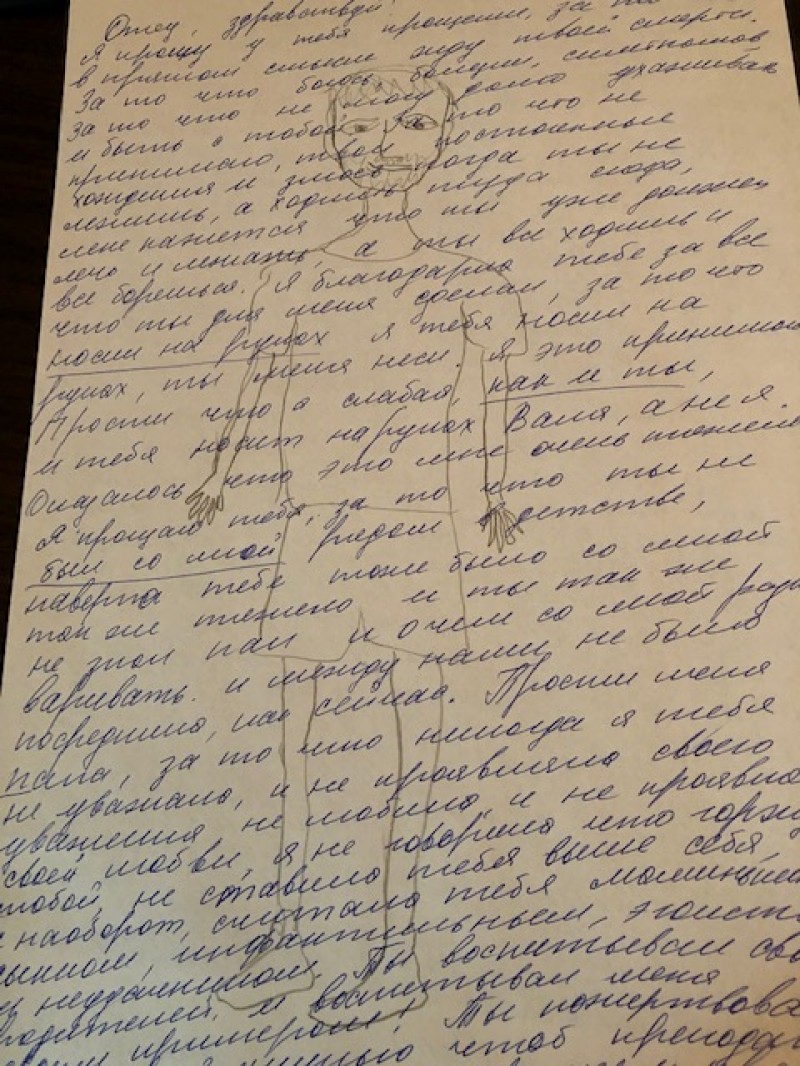 Отец, здравствуй!
Я прошу у тебя прощения, за то
в прямом смысле жду твоей смерти.
За то что боюсь болезни, симптомов
За то что не могу долго ухаживать
и быть с тобой что не
принимаю, твои постоянные
хождения и злюсь когда ты не
лежишь, а ходишь туда сюда,
мне кажется что ты уже должен
лечь и лежать, а ты всё ходишь и
всё борешься. Я благодарна тебе за все
что ты для меня сделал, за то что
носил на руках я тебя носил на
руках, ты меня неси. Я это принимаю
Прости что я слабая, как и ты,
и тебя носит на руках Валя, а не я.
Оказалось что это мне очень тяжело
Я прощаю тебя, за то что ты не
был со мной рядом в детстве,
наверно тебе тоже было со мной
так же тяжело и ты так же
не знал как и о чем со мной разго
варивать. и между нами не было
посредника, как сейчас. Прости меня
папа, за то что никогда я тебя
не уважала, и не проявляла своего
уважения, не любила, и не проявля
своей любви, я не говорила что горжу
тобой, не ставила тебя выше себя,
а наоборот, считала тебя маминым
сынком, инфантильным, эгоист
и неудачником. Ты воспитывал сво
родителей, и воспитывал меня
своим примером! Ты пожертвова
чтоб